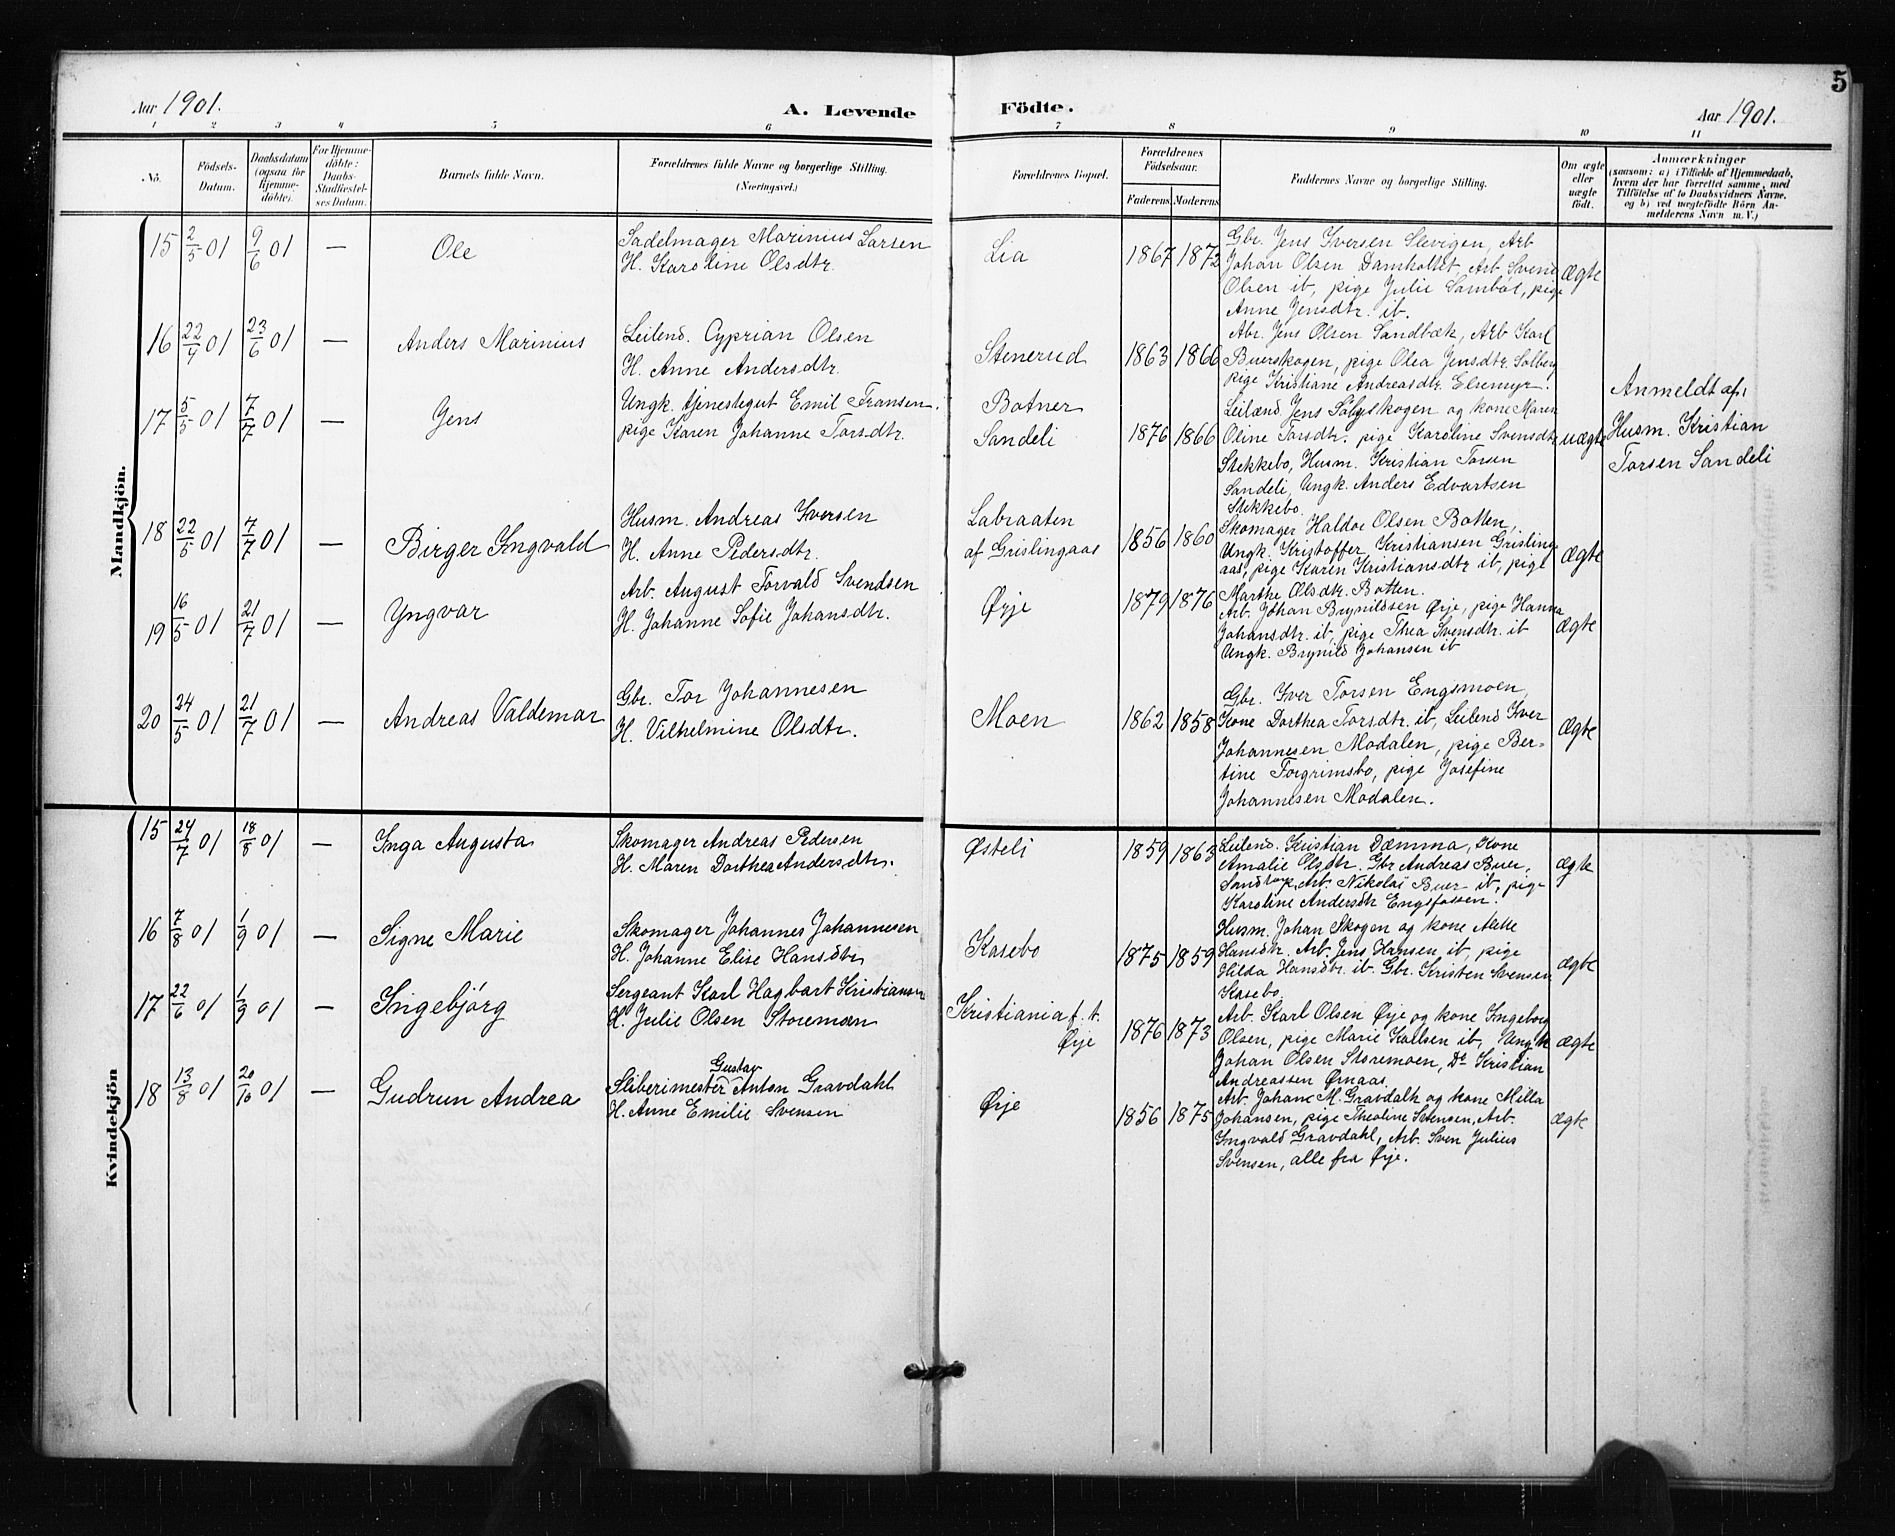 5
Aar 1901.
A. Levende Födte.
Aar 1901.
1 2 3 4 5 6 7 8 9 10 11
No.
Födsels-Datum.
Daabsdatum (ogsaa for hjemmedöbte).
For Hjemmedöbte: Daabs-Stadfestelses Datum.
Barnets fulde Navn.
Forældrenes fulde Navne og borgerlige Stilling. (Næringsvei.)
Forældrenes Bopæl.
Forældrenes Födselsaar.
Faderens Moderens
Faddernes Navne og borgerlige Stilling.
Om ægte eller uægte födt.
Anmærkninger
(saasom: a) i Tilfælde af Hjemmedaab,
hvem der har forrettet samme, med
Tilföielse af to Daabsvidners Navne,
og b) ved uægtefödte Börn Anmelderens Navn m. V.)
Mandkjön.
15 2/5 01 9/6 01 — Ole
Sadelmager Marinius Larsen
H. Karoline Olsdtr.
Lia 1867 1872
Gbr. Jens Iversen Slevigen, Arb
Johan Olsen Damholtet, Arb. Svend
Olsen ib, pige Julie Sambøl, pige
Anne Jensdtr. ib.
Ægte
16 22/4 01 23/6 01 — Anders Marinius
Leilend. Cyprian Olsen
H. Anne Andersdtr.
Stenerud 1863 1866
Abr. Jens Olsen Sandbæk, Arb Karl
Buerskogen, pige Olea Jensdtr. Solberg
pige Kristiane Andreasdtr. Elsemyr.
17 5/5 01 7/7 01 — Jens
Ungk. tjenestegut Emil Fransen.
pige Karen Johanne Torsdtr.
Botner
Sandeli 1876 1866
Leilænd Jens Skogen og kone Maren
Oline Torsdtr. pige Karoline Svensdtr
Stekkebo, Husm. Kristian Torsen
Sandeli, Ungk. Anders Edvartsen
Stekkebo.
uægte
Anmeldt af:
Husm. Kristian
Torsen Sandeli
18 22/5 01 7/7 01 — Birger Ingvald
Husm. Andreas Iversen
H. Anne Pedersdtr.
Labraaten
af Grislingaas 1856 1860
Skomager Haldor Olsen Botten,
Ungk. Kristoffer Kristiansen Grisling-
aas, pige Karen Kristiansdtr ib, pige
Marthe Olsdtr. Botten.
Ægte
19 16/5 01 21/7 01 — Yngvar
Arb. August Torvald Svendsen
H. Johanne Sofie Johansdtr.
Ørje 1879 1876
Arb. Johan Brynildsen Ørje, pige Hanna
Johansdtr. ib, pige Thea Svensdtr. ib
Ungk. Brynild Johansen ib
Ægte
20 24/5 01 21/7 01 — Andreas Valdemar
Gbr. Tor Johannesen
H. Vilhelmine Olsdtr.
Moen 1862 1858
Gbr. Iver Torsen Engsmoen,
Kone Dorthea Torsdtr. ib, Leilend Iver
Johannesen Modalen, pige Ber-
tine Torgrimsbo, pige Josefine
Johannesen Modalen.
Ægte
Kvindekjön
15 24/7 01 18/8 01 — Inga Augusta
Skomager Andreas Pedersen
H. Maren Dorthea Andersdtr.
Østeli 1859 1863
Leilend. Kristian Dæmma, Kone
Amalie Olsdtr. Gbr Andreas Buer,
Sandtorp, Arb. Nikolai Buer ib, pige
Karoline Andersdtr Engsfossen.
Ægte
16 7/8 01 1/9 01 — Signe Marie
Skomager Johannes Johannesen
H. Johanne Elise Hansdtr
Kasebo 1875 1859
Husm. Johan Skogen og kone Mette
Hansdtr. Arb. Jens Hansen ib, pige
Hilda Hansdtr. ib. Gbr. Kristen Svensen
Kasebo.
Ægte
17 22/6 01 1/9 01 — Ingebjörg
Sergeant Karl Hagbart Kristiansen
H. Julie Olsen Storemoen
Kristiania f. t.
Ørje 1876 1873
Arb. Karl Olsen Ørje og kone Ingeborg
Olsen, pige Marie Karlsen ib, Ungk
Johan Olsen Storemoen, Do Kristian
Andreassen Ørnaas.
Ægte
18 13/8 01 20/10 01 — Gudrun Andrea
Gustav
Sliberimester Anton Gravdahl
H. Anne Emilie Svensen
Ørje 1856 1875
Arb. Johan M. Gravdahl og kone Milla
Johansen, pige Theoline Svensen, Arb.
Ingvald Gravdahl, Arb. Sven Julius
Svensen, alle fra Ørje.
Ægte